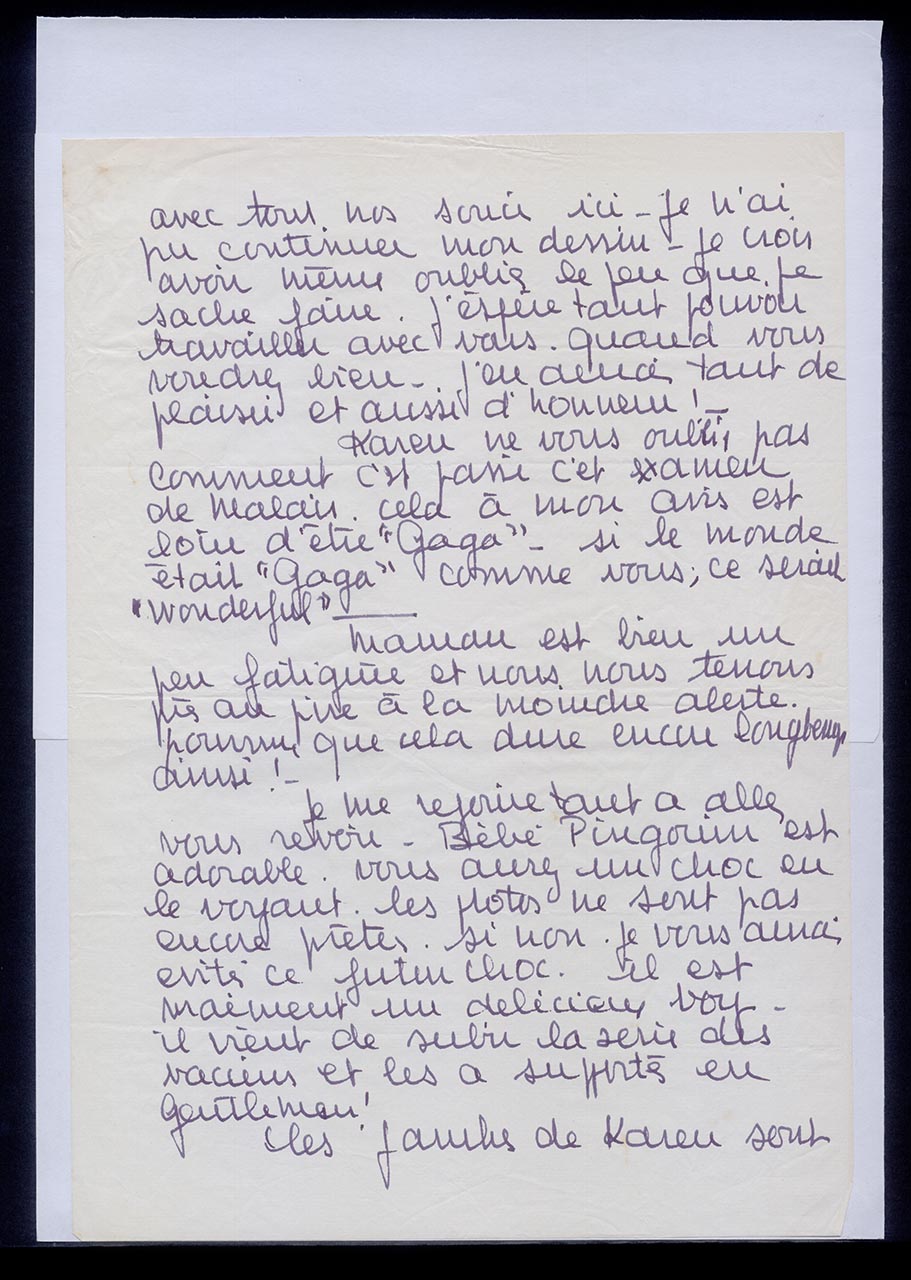 avec tous nos souci ici - Je n'ai
pu continuer mon dessin - Je crois
avoir même oublié le peu que je
sache faire. J'éspère tant pouvoir
travailler avec vous. quand vous
voudrez bien -. J'en aurai tant de
plaisir et aussi d'honneur! -
Karen ne vous oublie pas
Comment c'est passé c'et examen
de Malais. cela à mon avis est
loin d'être "Gaga" - si le monde
était "Gaga" comme vous; ce serait
"wonderful"
Maman est bien un
peu fatiguée et nous nous tenons
au pire à la moindre alerte.
pourvu que cela dure encore longtemps
ainsi! -
Je me rejouie tant a allez
vous revoir - Bébé Pingouin est
adorable. vous aurez un choc en
le voyant. les photos ne sont pas
encore prêtes. si non. je vous aurai
evité ce futur choc. il est
vraiment un delicieux boy -
il vient de subir la serie des
vaccins et les a supporté en
gentleman!
les jambes de Karen sont